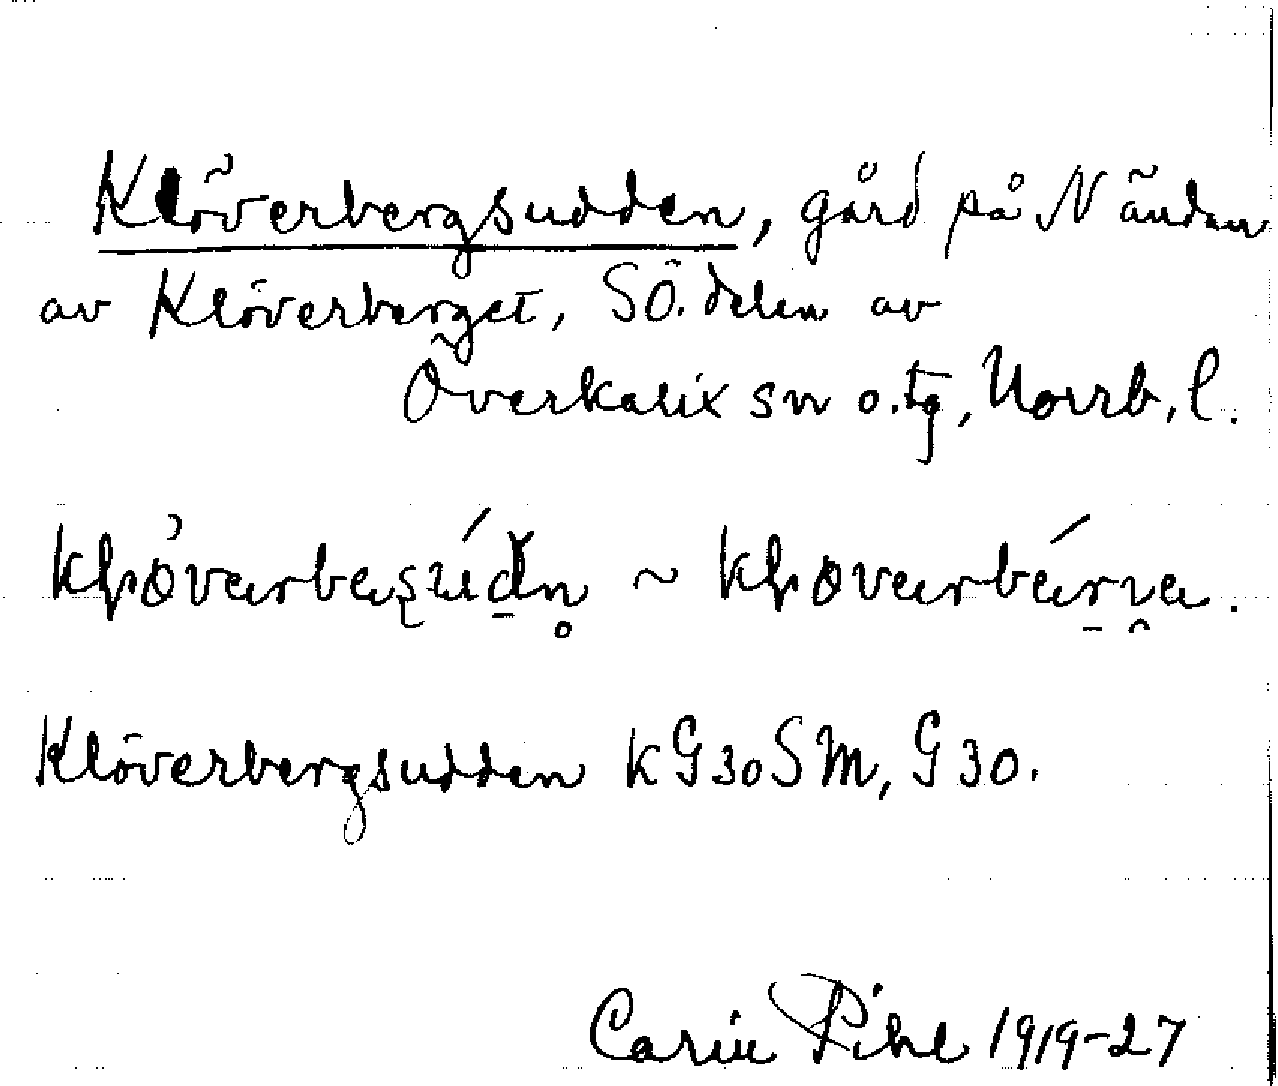 Klöverbergsudden, gård på N änden
av Klöverberget, SÖ. delen av
Överkalix sn o. tg, Norrb. l.
~
Klöverbergsudden K G 30 SM, G 30.
Carin Pihl 1919-27